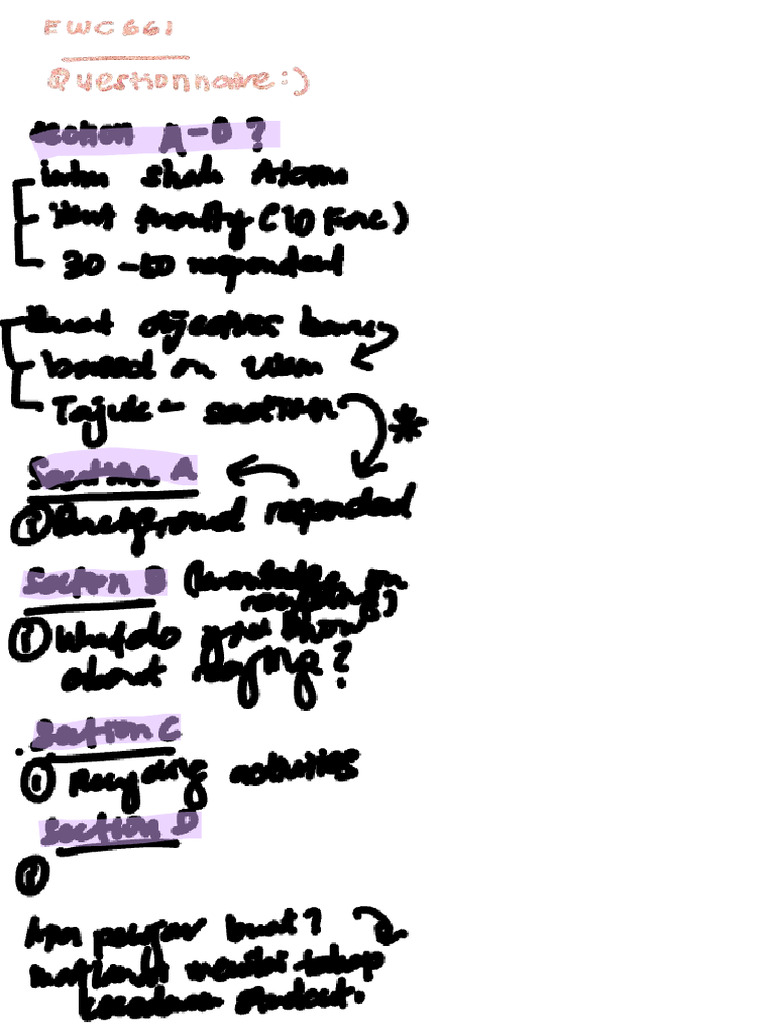 EWC661
Questionnaire:)
Section A-D?
uitm Shah Alam
(10
30 - 50 respondent
Buat objectives baru
based on
Tajuk - section
Section A
① Background respondent
Section B (knowledge on
recycling)
① What do you know
about recycling?
Section C
① Recycling activities
Section D
①
Apa pelajar buat?
tahap
kesedaran student.